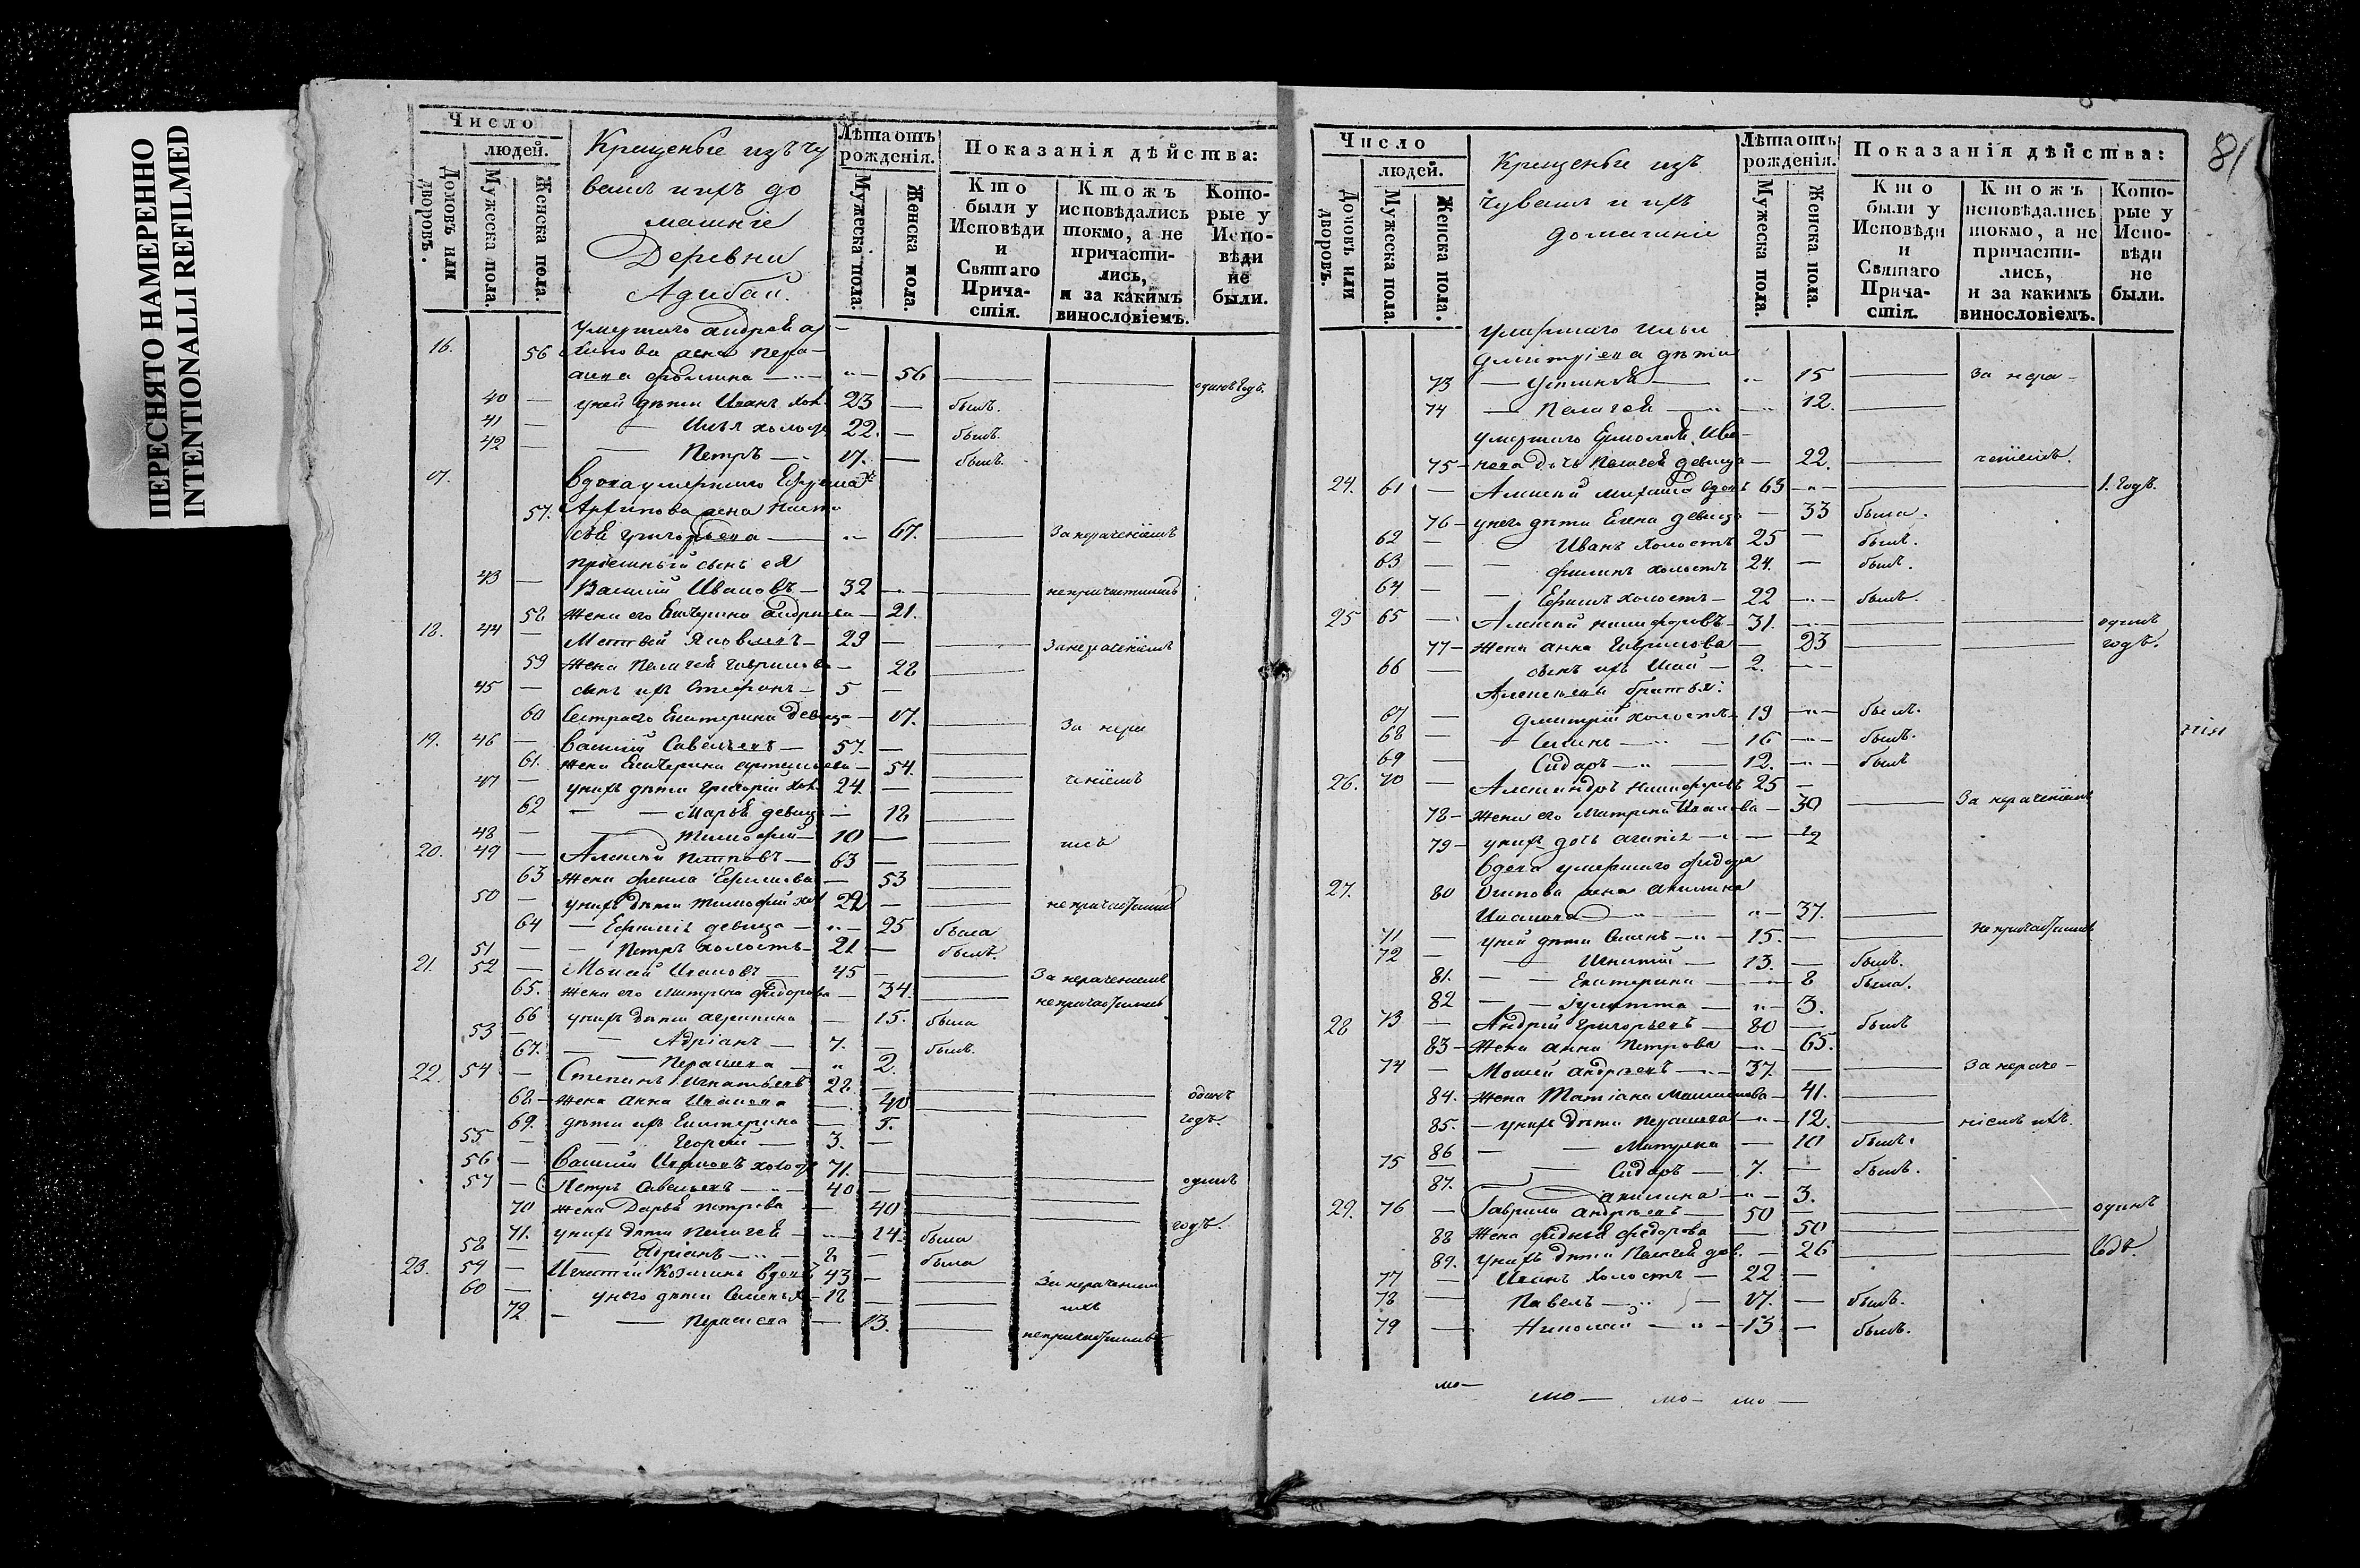 ПЕРЕСНЯТО НАМЕРЕННО
INTENTIONALLI REFILMED
Число
людей.
Домовъ или дворовъ.
Мужеска пола.
Женска пола.
Крещеные изъ чу
вашъ и ихъ до
машніе
Деревни
Адибай.
Лѣта отъ рожденія.
Мужеска пола.
Женска пола.
Показанія дѣйства:
Кто были у Исповѣди и Святаго Причастія.
Ктожъ исповѣдались токмо, а не причастились, и за какимъ винословіемъ.
Которые у Исповѣди не были.
умершаго Андрея
16. 56 жена Пера-
56 одинъ годъ.
40 — у ней дѣти Иванъ хол. 23 — былъ.
41 — Илья холостъ 22. — былъ.
42 — Петръ — 17. — былъ.
17. Вдова умершаго
57. Архипова жена Наста
сья Григорьева — 67. За нераченіемъ
сынъ ея
43 — Василій Ивановъ — 32
58 Жена его Екатерина Андреева — 21.
18. 44 — Матвей Яковлевъ — 29 — За нераченіемъ
59 Жена Пелагея Гаврилова — 28
45 — сынъ ихъ Стефанъ — 5 —
60 Сестра его Екатерина девица — 17. За нера
19. 46 — Василій Савельевъ — 57. —
61. Жена Екатерина — 54.
47 — у нихъ дѣти Григорій хол. 24. — ченіемъ
62 — Марья девица — 18
48 — Тимофей — 10 —
20. 49 — Алексей — 63 —
63 Жена Фекла Ефимова — 53
50 — у нихъ дѣти Тимофей хол 29 —
64 — девица — 25 была
51 — Петръ холостъ — 21 — былъ.
21. 52 — Моисей Ивановъ — 45 — За нераченіемъ
65. Жена его Матрена Федорова — 34.
66 у нихъ дѣти Агрипина — 15. была
53 — Адріанъ — 7. — былъ.
67. — 2.
22. 54 — Степанъ Игнатьевъ 28. — одинъ
68 — Жена Анна Иванова — 40 годъ.
69. дѣти ихъ Екатерина — 5.
55 — Георгій — 3. —
56 — Василій Ивановъ холостъ 71. —
57 — Петръ Савельевъ — 40 — одинъ
70 Жена Дарья Петрова — 40 годъ.
71. у нихъ дѣти Пелагея — 14. была
58 — Адріанъ — 8 — была
23. 59 — Игнатій Козминъ вдовъ 43 — За нераченіем
60 — у него дѣти Семенъ — 18 —
72 — 13.
Число
людей.
Домовъ или дворовъ.
Мужеска пола.
Женска пола.
Крещеные изъ
чувашъ и ихъ
домашніе
Лѣта отъ рожденія.
Мужеска пола.
Женска пола.
Показанія дѣйства:
Кто были у Исповѣди и Святаго Причастія.
Ктожъ исповѣдались токмо, а не причастились, и за какимъ винословіемъ.
Которые у Исповѣди не были.
81
умершаго Ильи
Дмитріева дѣти
73 — Устинья — 15 За нера-
74 — Пелагея — 12.
умершаго Ермолая Ива-
75 — нова дочь Пелагея девица — 22. ченіемъ.
24. 61 — Алексей вдовъ 63 1. годъ.
76 — у него дѣти Елена девица — 33 была.
62 — Иванъ холостъ 25 — былъ.
63 — Филипъ холостъ 24. — былъ.
64 — Ефимъ холостъ — 22 былъ.
25 65 — Алексей Никифоровъ — 31. одинъ
77 — Жена Анна Гаврилова — 23 годъ.
66 — сынъ ихъ — 2.
Алексеевы братья:
67 — Дмитрій холостъ — 19 былъ.
68 — 16 былъ.
69 — Сидоръ — 12. былъ
26. 70 — Александръ Никифоровъ 25 —
78 — Жена его Матрена Иванова — 30 За нераченіемъ
79 — у нихъ дочь — 2
Вдова умершаго Федора
27. 80 Осипова жена Акилина
Иванова — 37.
71 — у ней дѣти Семенъ — 15. —
72 — Игнатій — 13. — былъ.
81. — Екатерина — 8 была.
82 — 3.
28 73 — Андрей Григорьевъ — 80 — былъ
83 — Жена Анна Петрова — 65.
74 — Моисей Андреевъ — 37. — За нераче-
84. Жена Татіана — 41.
85. — у нихъ дѣти — 12. ніемъ ихъ.
86 — Матрена — 10 былъ.
75 — Сидоръ — 7. — былъ.
87. — Акилина — 3.
29. 76 — Гаврила Андреевъ — 50 — одинъ
88 Жена Федорова — 50
89. у нихъ дѣти Пелагея дев. — 26 годъ.
77 — Иванъ холостъ — 22 —
78 — Павелъ — 17. — былъ.
79 — Николай — 13 — былъ.